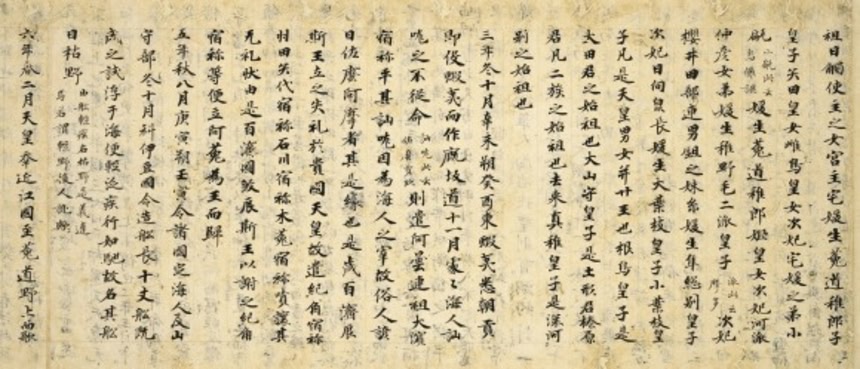 祖日觸使主之女宮主宅媛生菟道稚郎子
皇子矢田皇女雌鳥皇女次妃宅媛之弟小
甂媛生菟道稚郎姬皇女次妃河派
仲彦女弟媛生稚野毛二派皇子派此云次妃
櫻井田部連男鉏之妹糸媛生隼總別皇子
次妃日向泉長媛生大葉枝皇子小葉枝皇
子凡是天皇男女并廿王也根鳥皇子是
大田君之始祖也大山守皇子是土形君榛原
君凡二族之始祖也去来真稚皇子是深河
別之始祖也
三年冬十月辛未朔癸酉東蝦夷悉朝貢
即役蝦夷而作厩坂道十一月處々海人訕
哤之不従命訕哤此云則遣阿曇連祖大濱
宿祢平其訕哤因為海人之宰故俗人諺
曰佐麼阿摩者其是縁也是歳百濟辰
斯王立之失礼於貴國天皇故遣紀角宿祢
羽田矢代宿祢石川宿祢木菟宿祢嘖譲其
无礼状由是百濟國殺辰斯王以謝之紀角
宿祢等便立阿菀為王而歸
五年秋八月庚寅朔壬寅令諸國定海人及山
守部冬十月科伊豆國令造船長十丈船既
成之試浮于海便輕泛疾行如馳故名其船
曰枯野由船輕疾名枯野是義違焉若謂輕野後人訛歟
六年春二月天皇幸近江國至菟道野上而歌